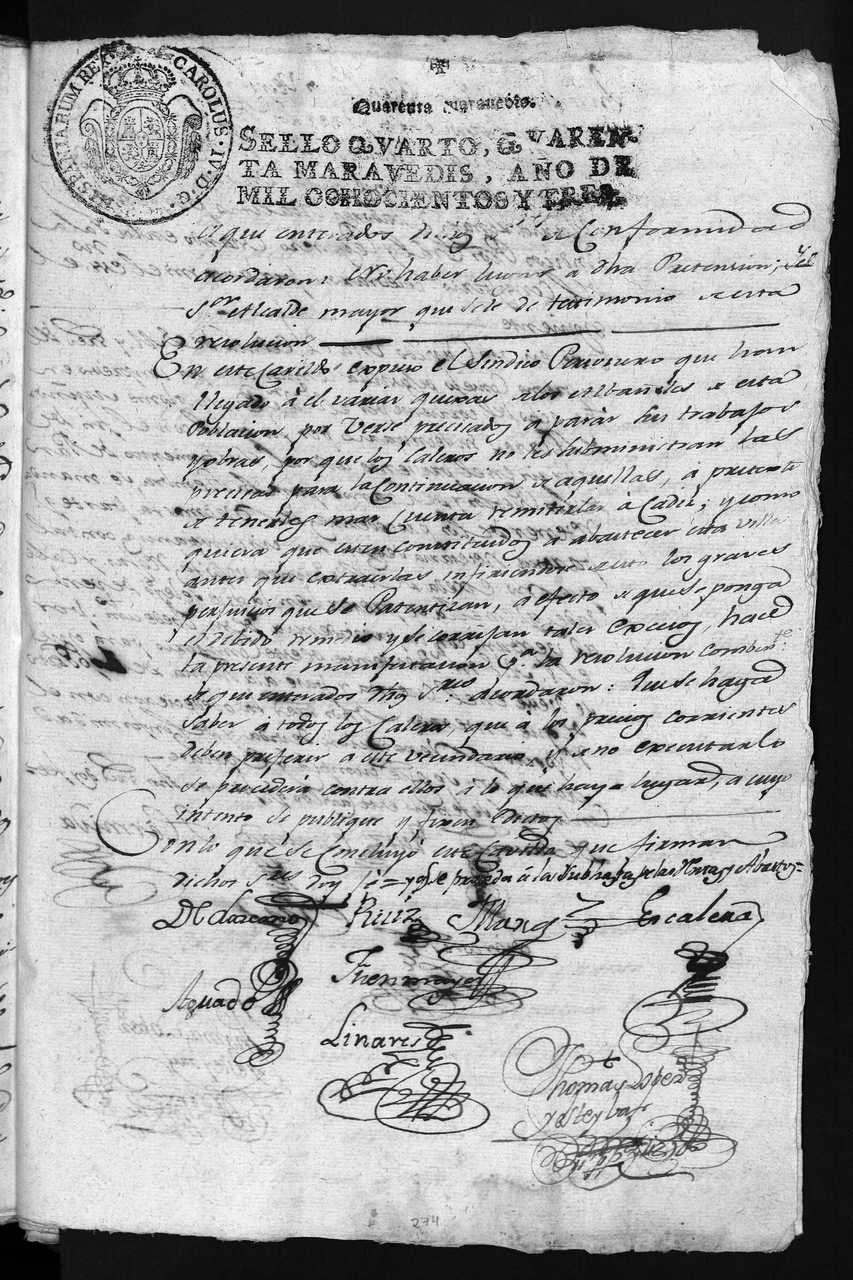 HISPANIARUM REX CAROLUS · IV · D · G ·
Quarenta marauedis.
SELLO QVARTO, QVAREN-
TA MARAVEDIS, AÑO DE
MIL OCHOCIENTOS Y TRES.
de que enterados dichos Sres de Conformidad
acordaron: no haber lugar a dha Pretension; y el
Sor Alcalde mayor que se le de testimonio de esta
resolucion
En este Cavildo expuso el Sindico Personero que han
llegado à el varias quexas de los Albañiles de esta
Poblacion por Verse precisados a parar sus trabajos
y obras, por que los Caleros no les subministran las
precisas para la Continuacion de aquellas, a pretexto
de tenerles mas Cuenta remitirlas à Cadiz; y como
quiera que esten constituidos a abastecer esta villa
antes que extraerlas infiriendose de esto los graves
perjuicios que se Patentizan, a efecto de que se ponga
el debido remedio y se corrijan tales excesos, hace
la presente manifestacion pa la resolucion combente.
de que enterados dhos Sres acordaron: Que se haga
saber à todos los Caleros, que a los precios corrientes
deben preferir a este vecindario, y de no executarlo
se procederá contra ellos à lo que haya lugar, a cuyo
intento se publique y fixen Edictos
Con lo que se Concluyó este Cavildo que firman
dichos Sres doy fé = y qe se proceda à la Subhasta de las Rentas y Abastos =
Ruiz Escalera
Aguado Fuenmayor
Linares
Thomas Lopez
y de Leyba
274